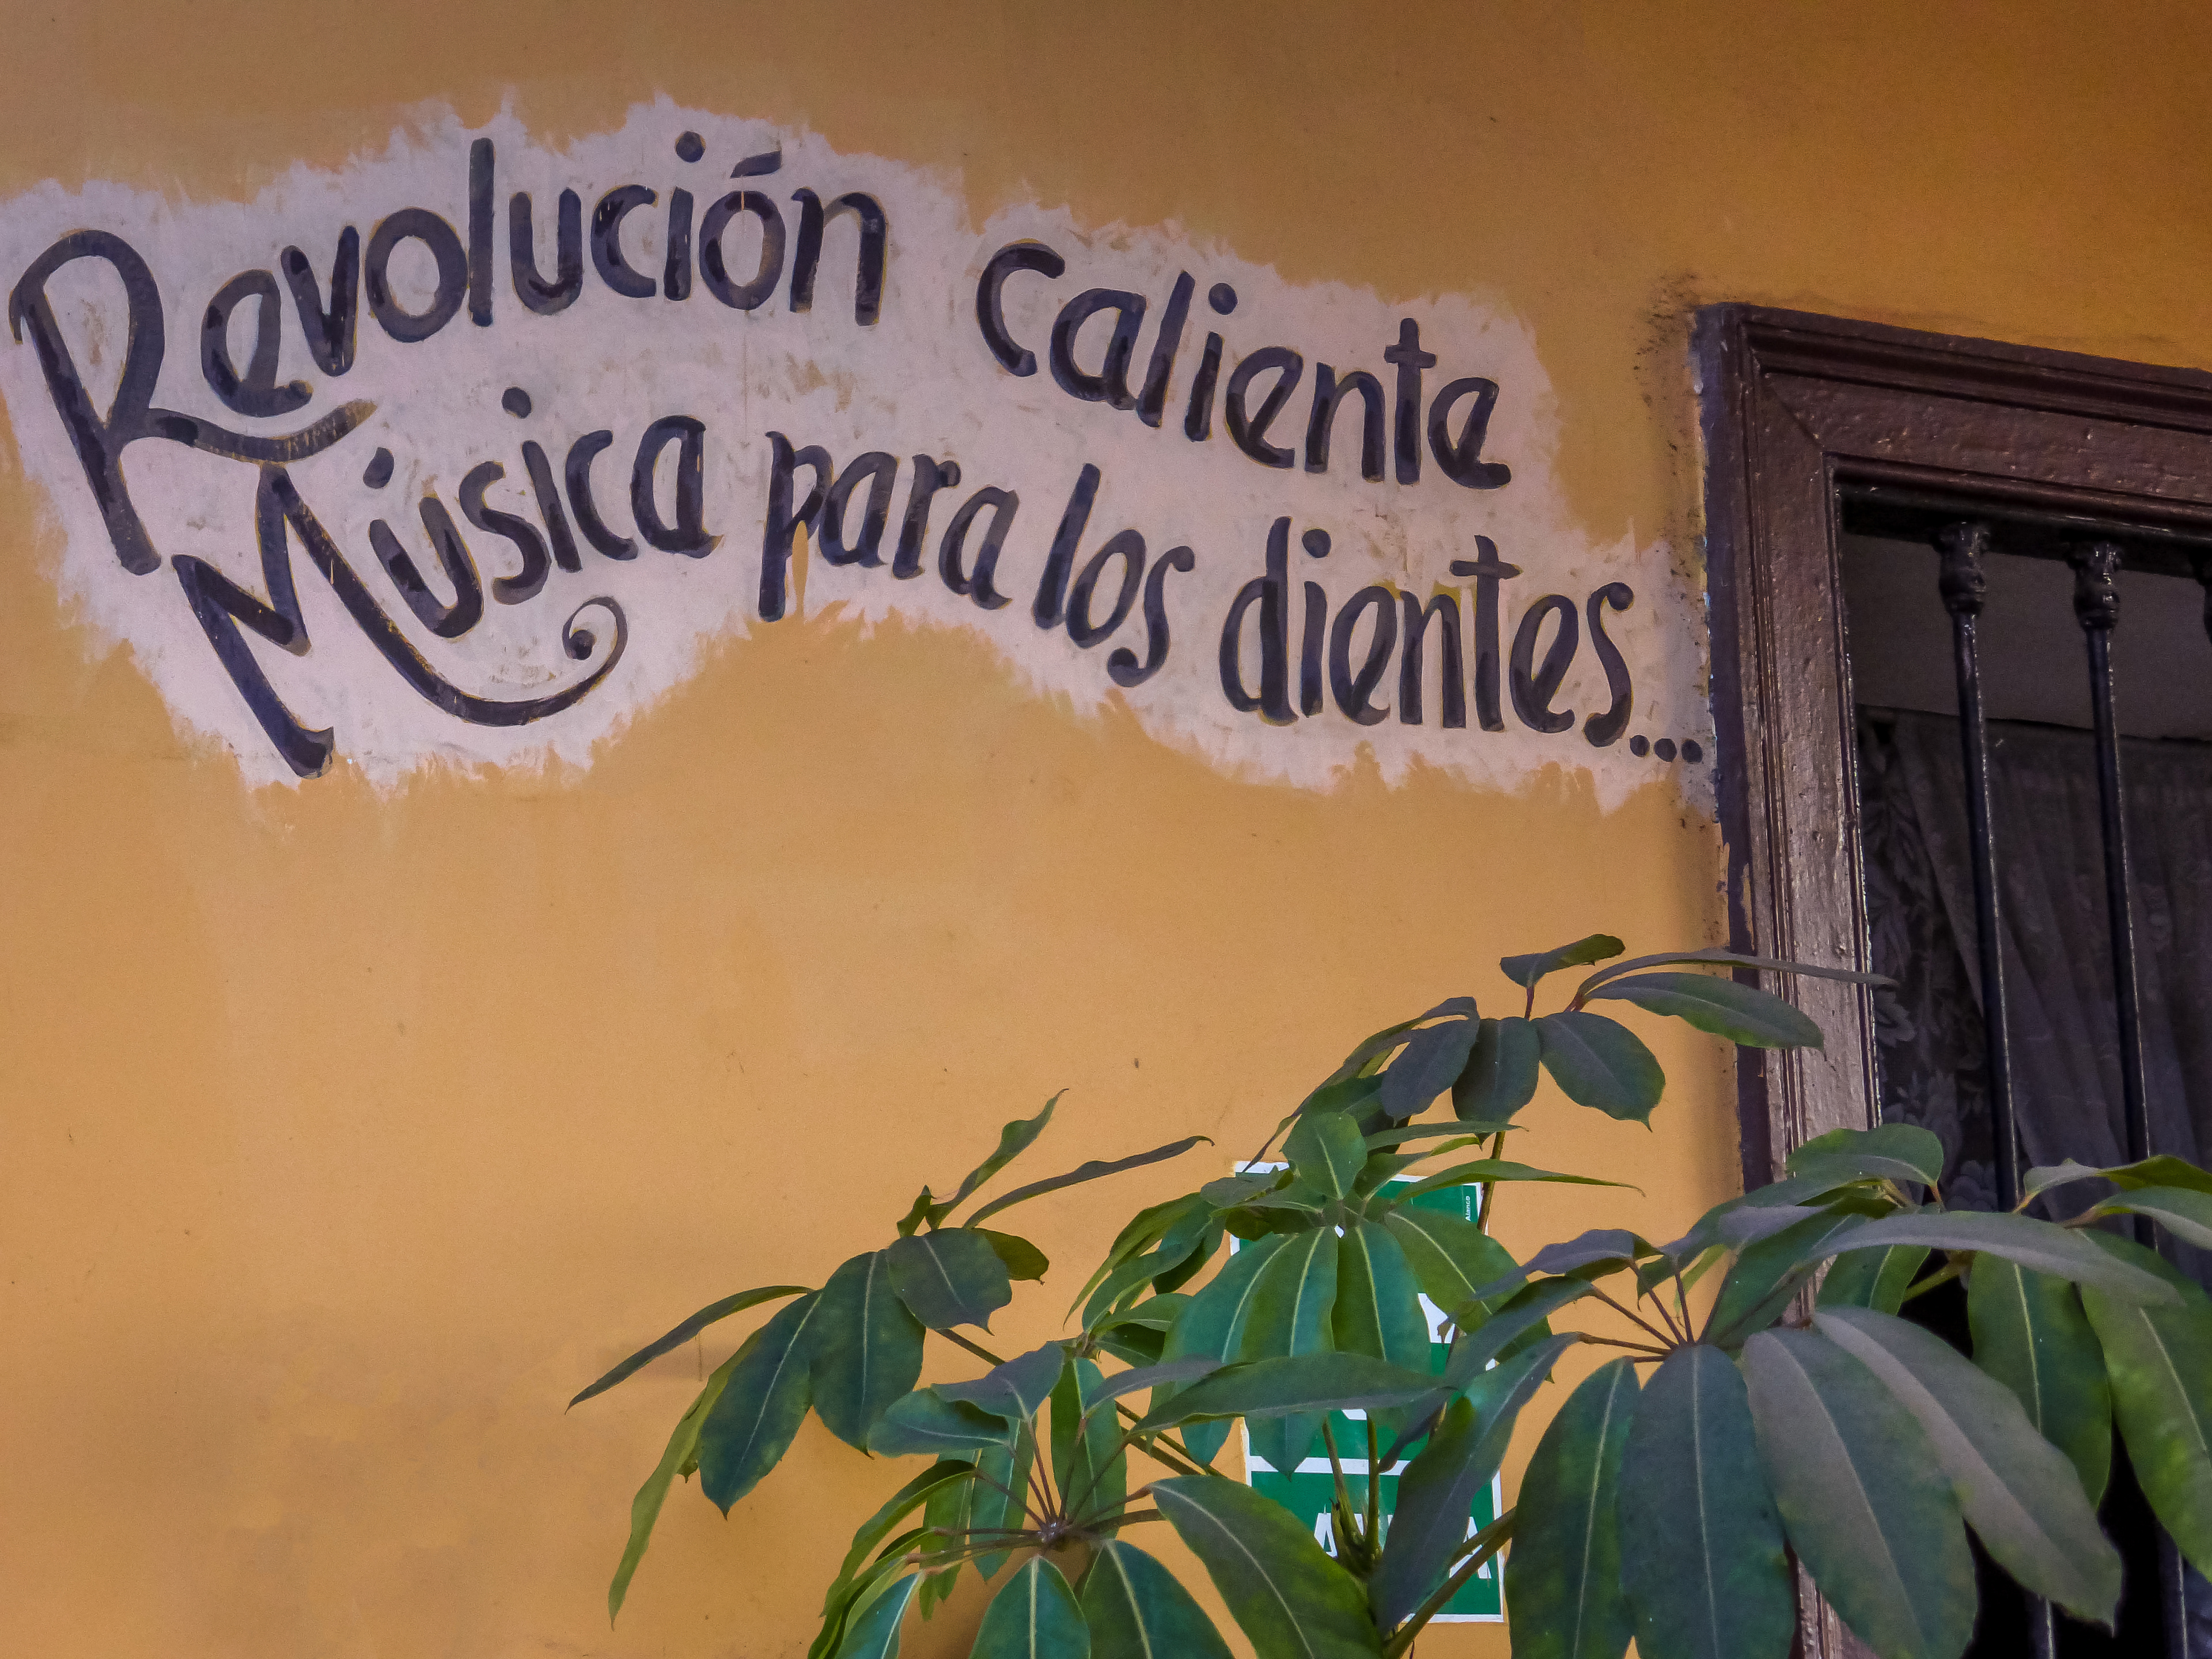 Revolución caliente
Música para los dientes...